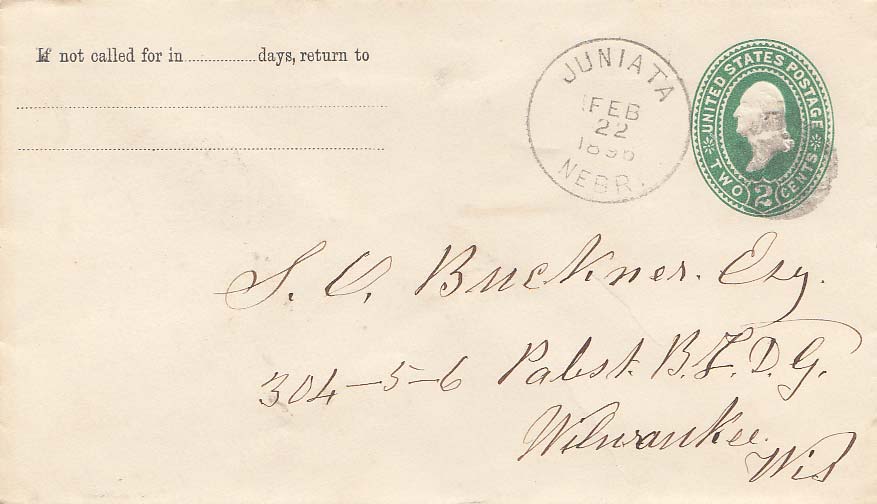 If not called for in................days, return to
JUNIATA
FEB
22
NEBR.
UNITED STATES POSTAGE
TWO 2 CENTS
Buckner. Esq.
304-5-6 Pabst. B.L.D.G.
Milwaukee.
Wis